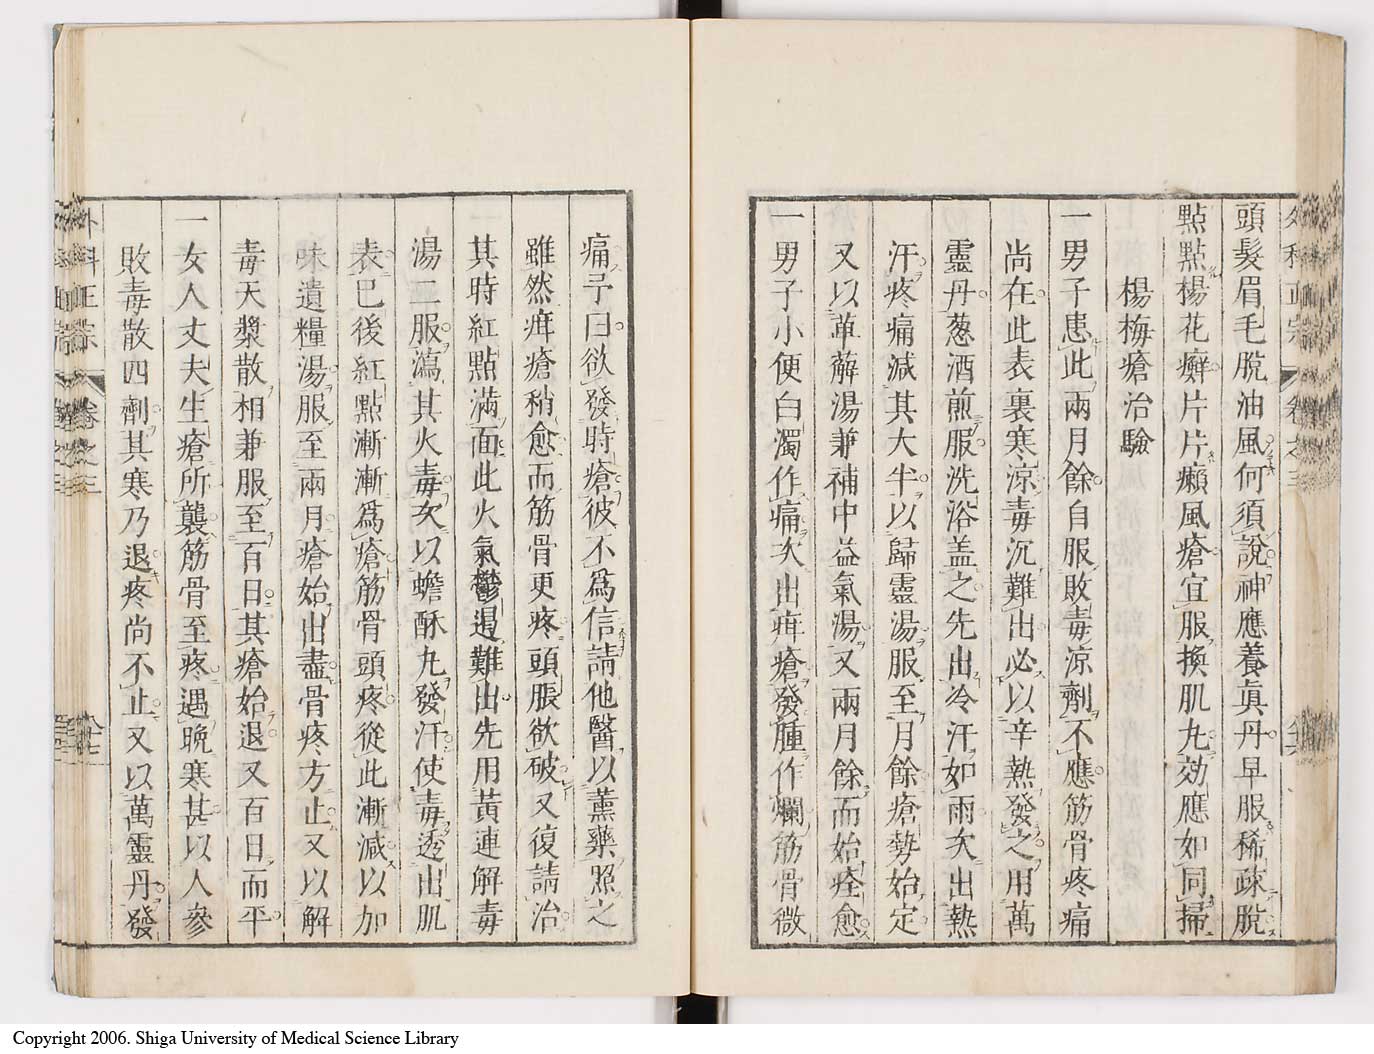 頭髮眉毛脫油風何須說神應養眞丹早服稀疎脫
點點楊花癬片片癩風瘡宜服換肌丸効應如同掃
楊梅瘡治驗
一男子患此兩月餘自服敗毒凉劑不應筋骨疼痛
尚在此表裏寒凉毒沉難出必以辛熱發之用萬
靈丹葱酒煎服洗浴盖之先出冷汗如雨次出熱
汗疼痛減其大半以歸靈湯服至月餘瘡勢始定
又以萆薢湯兼補中益氣湯又兩月餘而始痊愈
一男子小便白濁作痛次出疳瘡發腫作爛筋骨微
痛予曰欲發時瘡彼不爲信請他醫以薰藥照之
雖然疳瘡稍愈而筋骨更疼頭脹欲破又復請治
其時紅點滿面此火氣鬱遏難出先用黃連解毒
湯二服瀉其火毒次以蟾酥丸發汗使毒透出肌
表已後紅點漸漸爲瘡筋骨頭疼從此漸減以加
味遺糧湯服至兩月瘡始出盡骨疼方止又以解
毒天漿散相兼服至百日其瘡始退又百日而平
一女人丈夫生瘡所襲筋骨至疼遇晚寒甚以人參
敗毒散四劑其寒乃退疼尚不止又以萬靈丹發
外科正宗
卷之三
八十七
Copyright 2006. Shiga University of Medical Science Library